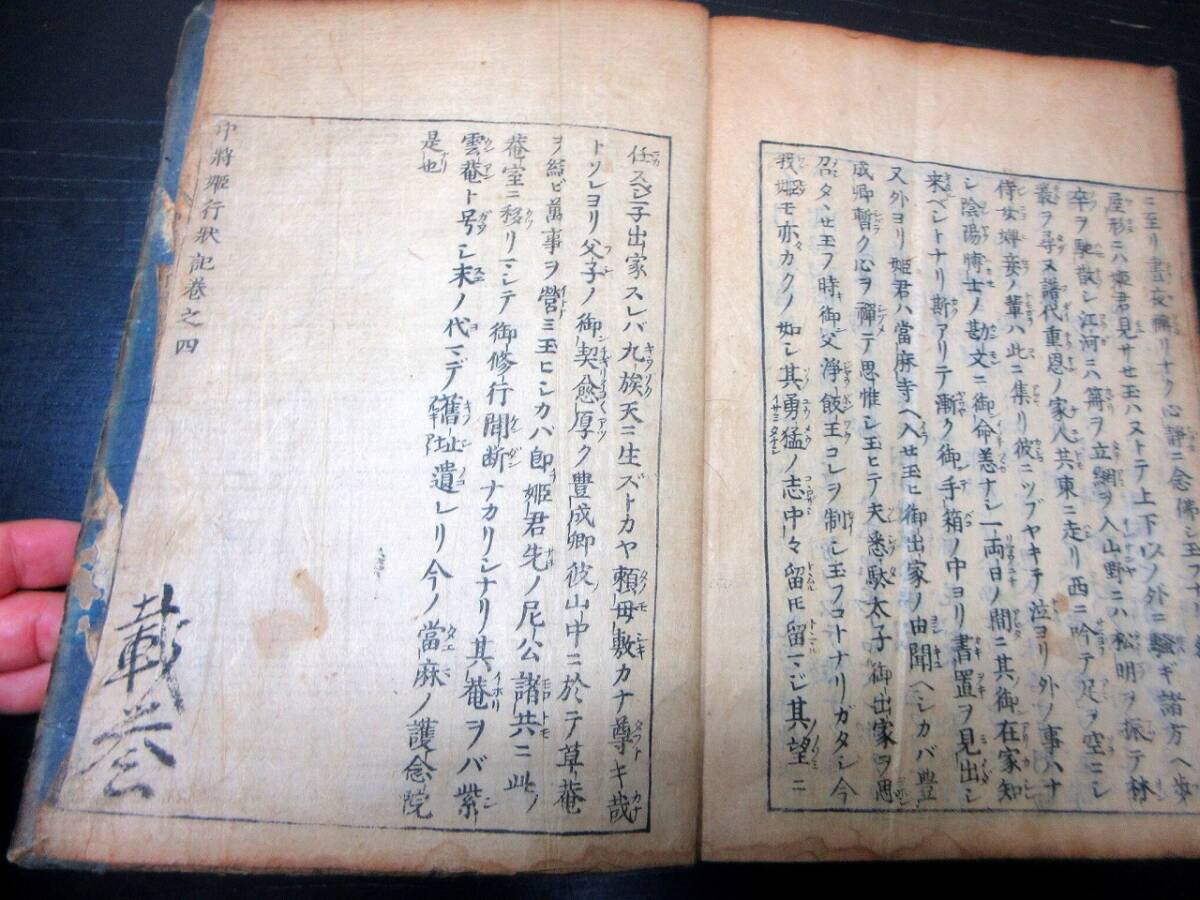 ニ至リ晝夜懈リナク心静ニ念佛シ玉フ
屋形ニハ姫君見サセ玉ハヌトテ上下以ノ外ニ騒ギ諸方ヘ歩
卒ヲ馳散シ江河ニハ網ヲ入山野ニハ松明ヲ振テ林
叢ヲ尋ヌ譜代重恩ノ家人共東ニ走リ西ニ吟テ足ヲ空ニシ
侍女婢妾ノ輩ハ此ニ集リ彼ニツブヤキテ泣ヨリ外ノ事ハナ
シ陰陽博士ノ勘文ニ御命恙ナシ一両日ノ間ニ其御在家知
来ベシトナリ斯アリテ漸ク御手箱ノ中ヨリ書置ヲ見出シ
又外ヨリ姫君ハ當麻寺ヘ入セ玉ヒ御出家ノ由聞ヘシカバ豊
成卿暫ク心ヲ禪テ思惟シ玉ヒテ夫悉駄太子御出家ヲ思
召タヽセ玉フ時御父淨飯王コレヲ制シ玉フコトナリガタシ今
我姫モ亦カクノ如シ其勇猛ノ志中々留ルトモ留マジ其望ニ
任スベシ一子出家スレバ九族天ニ生ズトカヤ頼母敷カナ尊キ哉
トソレヨリ父子ノ御契愈厚ク豊成卿彼山中ニ於テ草菴
ヲ結ビ萬事ヲ營ミ玉ヒシカバ即姫君先ノ尼公諸共ニ此ノ
菴室ニ移リマシテ御修行間断ナカリシナリ其菴ヲバ紫
雲菴ト号シ末ノ代マデ舊址遺レリ今ノ當麻ノ護念院
是也
中将姫行状記巻之四